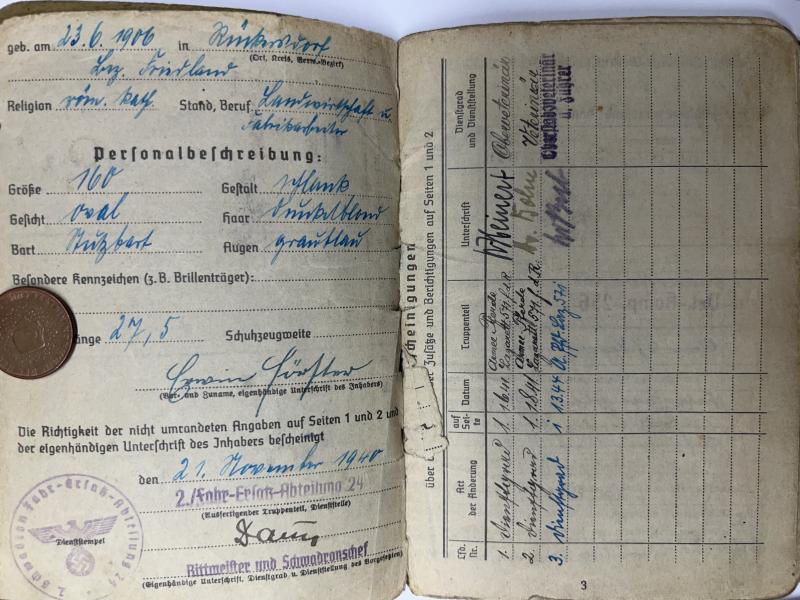 geb. am 23.6.1906 in Rückersdorf
(Ort, Kreis, Verw.-Bezirk)
Bez. Friedland
Religion röm. kath. Stand, Beruf Landwirtschaft u.
Fabrikarbeiter
Personalbeschreibung:
Größe 160 Gestalt schlank
Gesicht oval Haar dunkelblond
Bart Stutzbart Augen graublau
Besondere Kennzeichen (z.B. Brillenträger):
änge 27,5 Schuhzeugweite
Erwin Förster
(Vor- und Zuname, eigenhändige Unterschrift des Inhabers)
Die Richtigkeit der nicht umrandeten Angaben auf Seiten 1 und 2 und
der eigenhändigen Unterschrift des Inhabers bescheinigt
den 21. November 1940
2./Fahr-Ersatz-Abteilung 24
(Ausfertigender Truppenteil, Dienststelle)
Dienststempel
Rittmeister und Schwadronschef
(Eigenhändige Unterschrift, Dienstgrad u. Dienststellung des Vorgesetzten)
2. Schwadron Fahr-Ersatz-Abteilung 24
cheinigungen
über er Zusätze und Berichtigungen auf Seiten 1 und 2
Lfd. Nr. Art der Änderung auf Seite Datum Truppenteil Unterschrift Dienstgrad und Dienststellung
1. 1. Armee Pferde
Lazarett 541 Meinert
2. 1. Armee Pferde
Lazarett 541 Veterinär
3. 1 1.3.44 Oberstabsveterinär
u. Führer
3